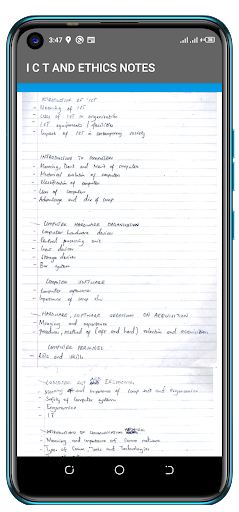 3:47
I C T AND ETHICS NOTES
INTRODUCTION OF ICT
- Meaning of ICT
- Uses of ICT in organization
- ICT equipments / facilities
- Impact of ICT in contemporary society
INTRODUCTION TO COMPUTERS
- Meaning, and of computer
- Historical evolution of computer
- Classification of computer
- Uses of computer
- Advantage and dis of comp
- COMPUTER HARDWARE ORGANISATION
- Computer hardware devices
- Central processing unit
- Input devices
- Storage devices
- Bus system
COMPUTER SOFTWARE
- Computer software
- Importance of comp
- HARDWARE, SOFTWARE SELECTION OR ACQUISITION
- Meaning and importance
- procedure, method of (soft and hard) selection and acquisition
COMPUTER PERSONNEL
- and skills
- and importance of comp and Ergonomics
- Safety of computer system
- Ergonomics
- IT
INTRODUCTION OF COMMUNICATION
- Meaning and importance of Comm network
- Types of Comm, and Technologies